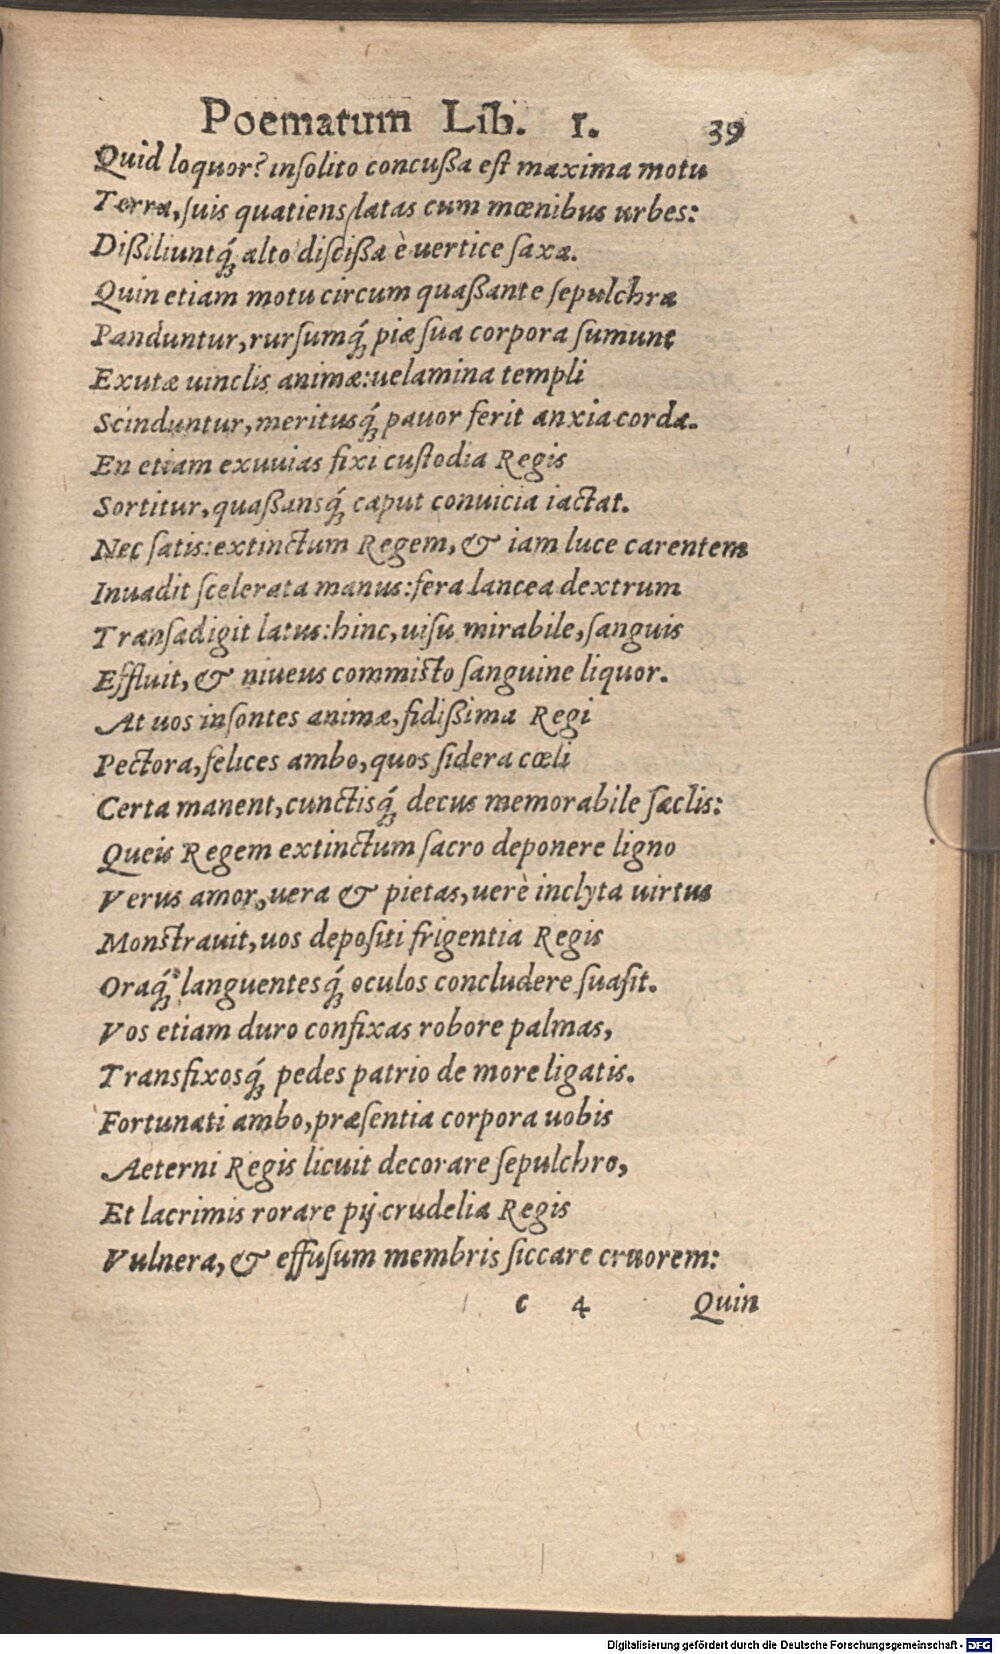 Poematum Lib. 1. 39
Quid loquor? inſolito concuſſa eſt maxima motu
Terra, ſuis quatiens latas cum mœnibus urbes:
Dißiliuntq́ꝫ alto diſcißa è uertice ſaxa.
Quin etiam motu circum quaßante ſepulchra
Panduntur, rurſumq́ꝫ piæ ſua corpora ſumunt
Exutæ uinclis animæ: uelamina templi
Scinduntur, meritusq́ꝫ pauor ferit anxia corda.
En etiam exuuias fixi cuſtodia Regis
Sortitur, quaßansq́ꝫ caput conuicia iactat.
Nec ſatis: extinctum Regem, & iam luce carentem
Inuadit ſcelerata manus: fera lancea dextrum
Tranſadigit latus: hinc, uiſu mirabile, ſanguis
Effluit, & niueus commiſto ſanguine liquor.
At uos inſontes animæ, fidißima Regi
Pectora, felices ambo, quos ſidera cœli
Certa manent, cunctisq́ꝫ decus memorabile ſæclis:
Queis Regem extinctum ſacro deponere ligno
Verus amor, uera & pietas, uerè inclyta uirtus
Monſtrauit, uos depoſiti frigentia Regis
Oraq́ꝫ languentesq́ꝫ oculos concludere ſuaſit.
Vos etiam duro confixas robore palmas,
Transfixosq́ꝫ pedes patrio de more ligatis.
Fortunati ambo, præſentia corpora uobis
Aeterni Regis licuit decorare ſepulchro,
Et lacrimis rorare pij crudelia Regis
Vulnera, & effuſum membris ſiccare cruorem:
c 4 Quin
Digitalisierung gefördert durch die Deutsche Forschungsgemeinschaft - DFG